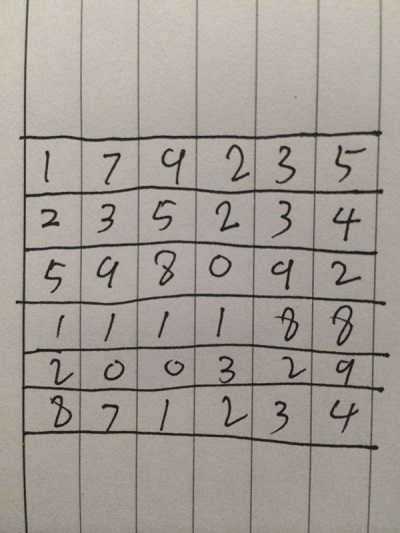 1 7 9 2 3 5
2 3 5 2 3 4
5 9 8 0 9 2
1 1 1 1 8 8
2 0 0 3 2 9
8 7 1 2 3 4